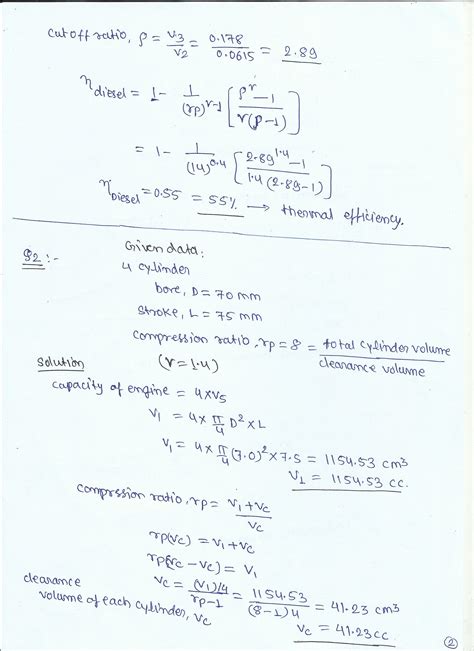 cutoff ratio, ρ = V3/V2 = 0.178/0.0615 = 2.89
ηdiesel = 1 - 1/(rp)^(r-1) [ (ρ^r - 1)/(r(ρ-1)) ]
= 1 - 1/(14)^0.4 [ (2.89^1.4 - 1)/(1.4(2.89-1)) ]
ηDiesel = 0.55 = 55% → thermal efficiency.
Q2 :- Given data:
4 cylinder
bore, D = 70 mm
stroke, L = 75 mm
compression ratio, rp = 8 = total cylinder volume/clearance volume
Solution (r = 1.4)
capacity of engine = 4×Vs
V1 = 4 × π/4 D² × L
V1 = 4 × π/4 (7.0)² × 7.5 = 1154.53 cm3
V1 = 1154.53 cc.
compression ratio, rp = (V1+Vc)/Vc
rp(Vc) = V1+Vc
rpVc - Vc) = V1
clearance volume of each cylinder, Vc
Vc = (V1)/4/(rp-1) = 1154.53/((8-1)4) = 41.23 cm3
Vc = 41.23 cc.
2